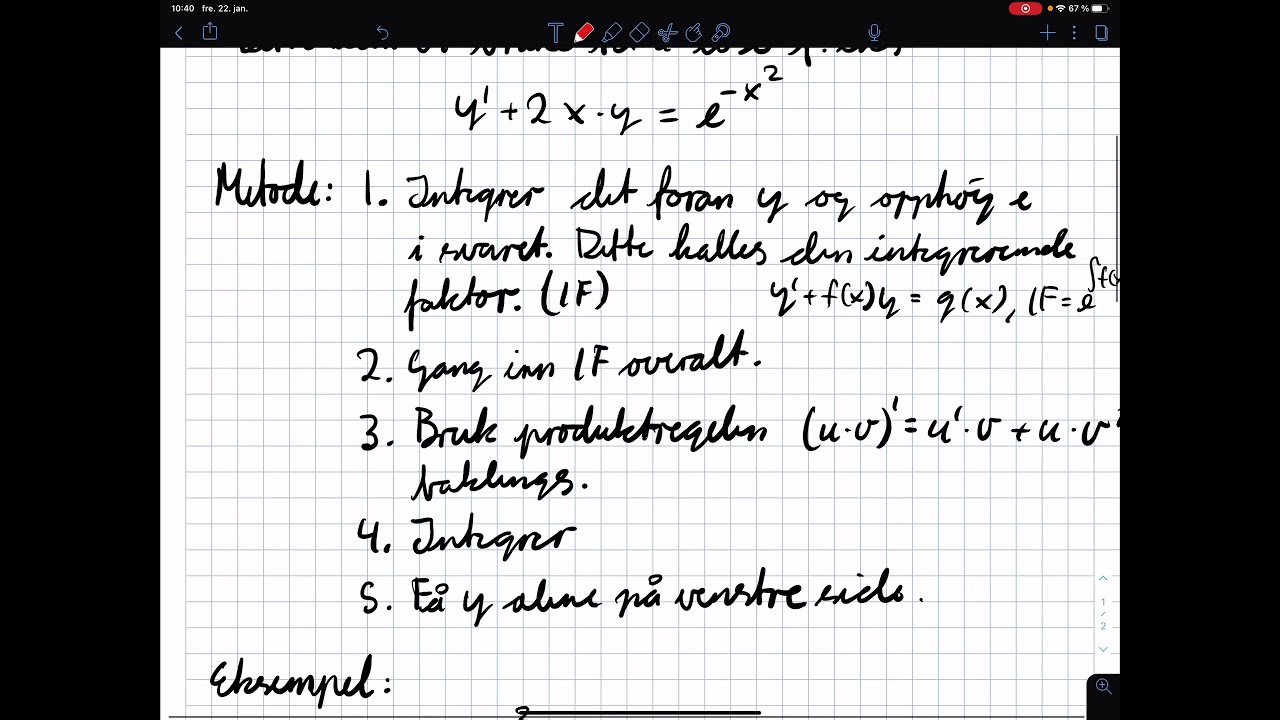 10:40 fre. 22. jan.
67 %
y' + 2x·y = e^{-x^2}
Metode: 1. Integrer det foran y og opphöy e
i svaret. Dette kalles den integrerende
faktor. (IF) y' + f(x)y = g(x), IF = e^{∫f(x
2. Gang inn IF overalt.
3. Bruk produktregelen (u·v)' = u'·v + u·v'
baklengs.
4. Integrer
5. Få y alene på venstre side.
1
2
Eksempel: